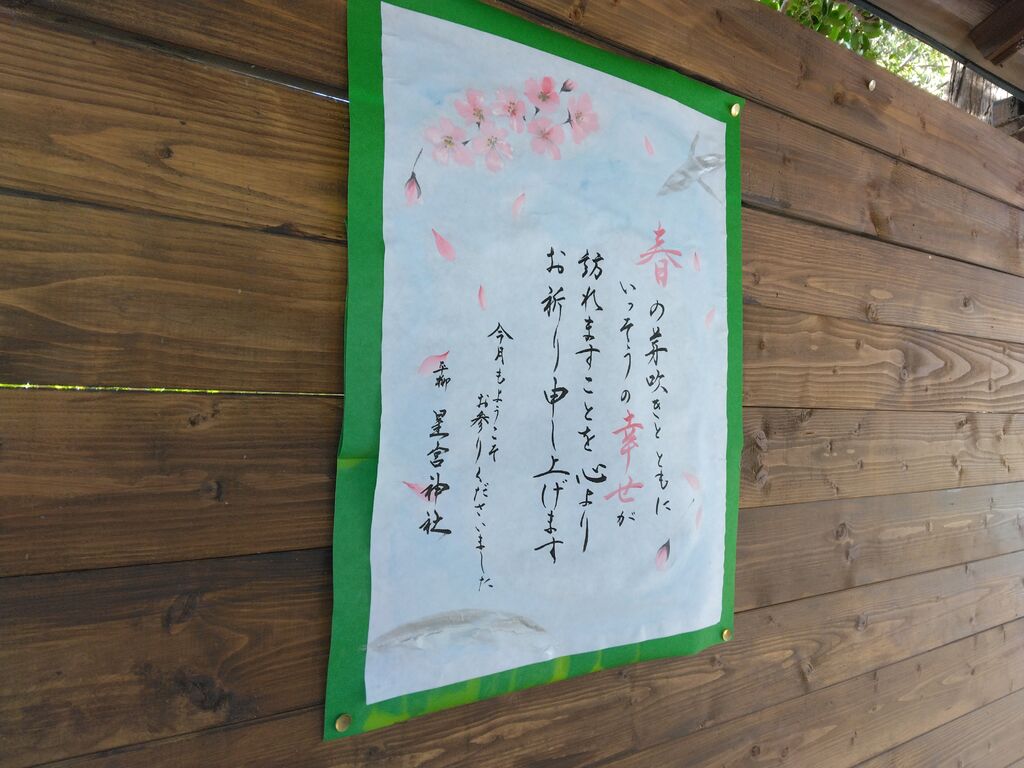 春の芽吹きとともに
いっそうの幸せが
訪れますことを心より
お祈り申し上げます
今月もようこそ
お参りくださいました
平柳 星宮神社